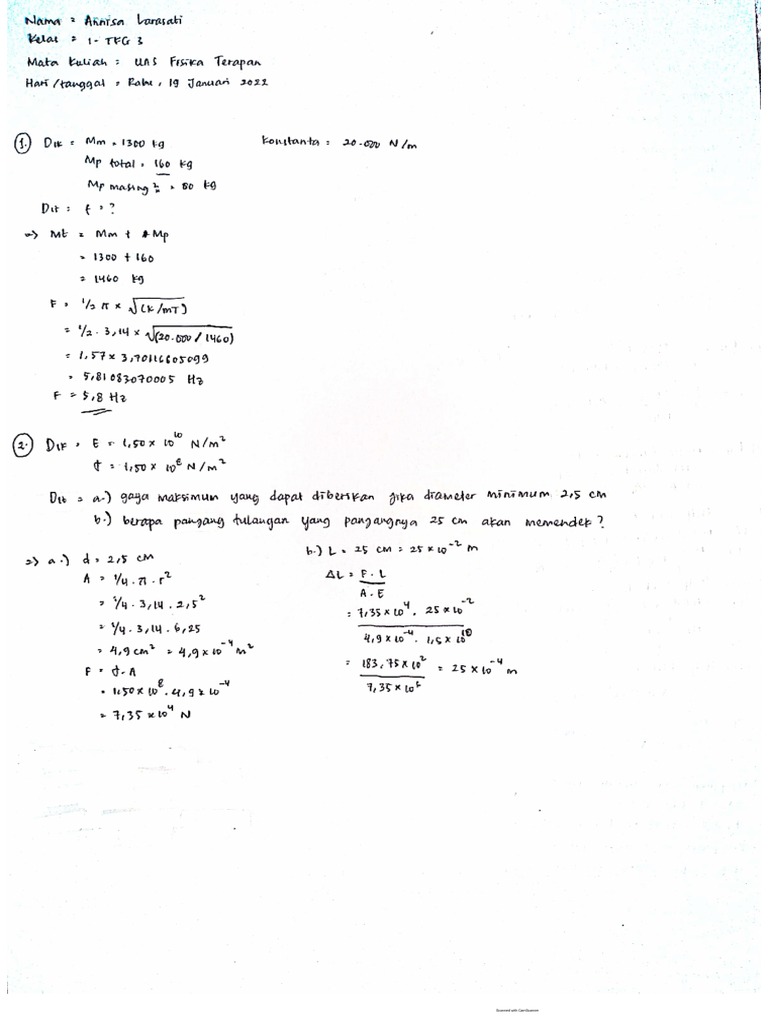 Nama = Annisa Larasati
Kelas = 1 - TKG 3
Mata Kuliah = UAS Fisika Terapan
Hari /tanggal = Rabu, 19 Januari 2022
1. Dik = Mm = 1300 kg
Konstanta = 20.000 N/m
Mp total = 160 kg
Mp masing² = 80 kg
Dit = f = ?
=> Mt = Mm + Mp
= 1300 + 160
= 1460 kg
F = 1/2 π × √(K/mT)
= 1/2 . 3,14 × √(20.000 / 1460)
= 1,57 × 3,70116605099
= 5,81083070005 Hz
F = 5,8 Hz
2. Dik = E = 1,50 × 10¹⁰ N/m²
σ = 1,50 × 10⁸ N/m²
Dit = a.) gaya maksimum yang dapat diberikan jika diameter minimum 2,5 cm
b.) berapa panjang tulangan yang panjangnya 25 cm akan memendek ?
=> a.) d = 2,5 cm
A = 1/4 . π . r²
= 1/4 . 3,14 . 2,5²
= 1/4 . 3,14 . 6,25
= 4,9 cm² = 4,9 × 10⁻⁴ m²
F = σ . A
= 1,50 × 10⁸ . 4,9 × 10⁻⁴
= 7,35 × 10⁴ N
b.) L = 25 cm = 25 × 10⁻² m
ΔL = F . L
A . E
= 7,35 × 10⁴ . 25 × 10⁻²
4,9 × 10⁻⁴ . 1,5 × 10¹⁰
= 183,75 × 10² = 25 × 10⁻⁴ m
7,35 × 10⁶
Scanned with CamScanner